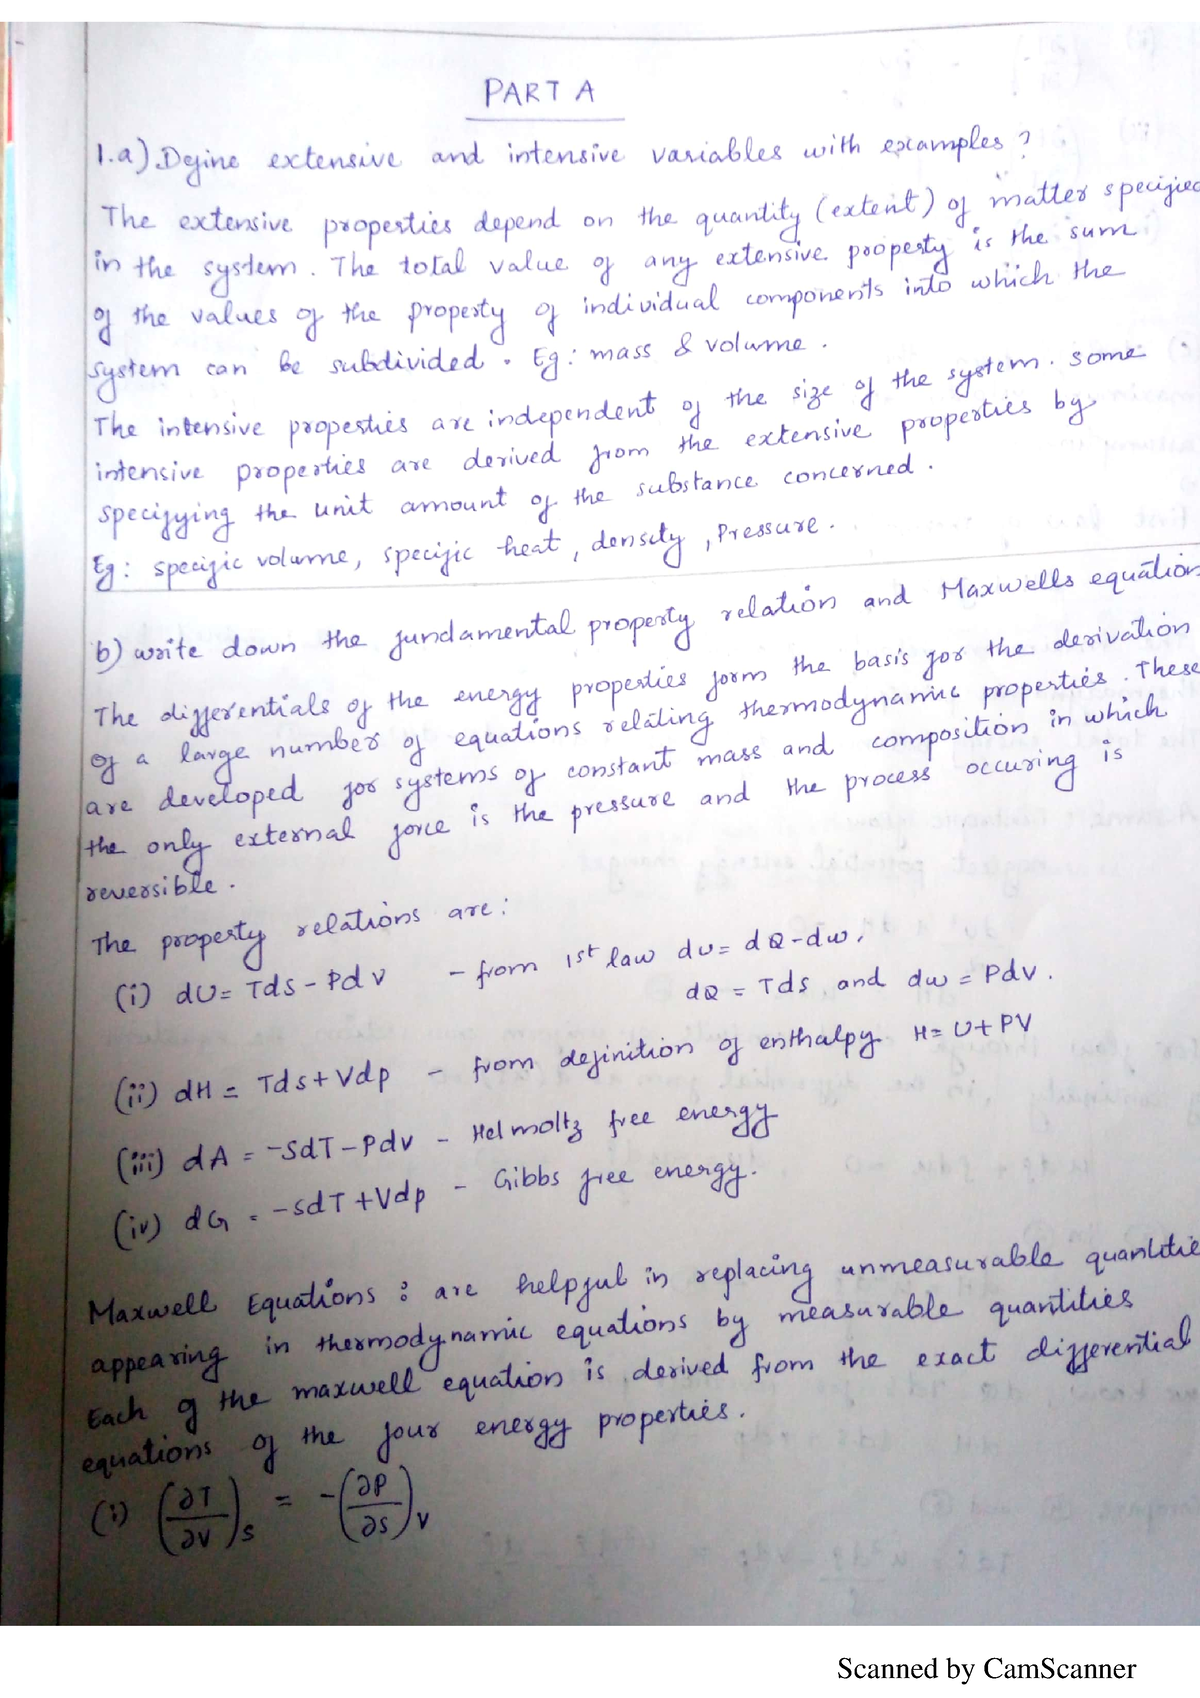 PART A
1.a) Define extensive and intensive variables with examples ?
The extensive properties depend on the quantity (extent) of matter specified
in the system. The total value of any extensive property is the sum
of the values of the property of individual components into which the
system can be subdivided. Eg: mass & volume.
The intensive properties are independent of the size of the system. Some
intensive properties are derived from the extensive properties by
specifying the unit amount of the substance concerned.
Eg: specific volume, specific heat, density, Pressure.
b) write down the fundamental property relation and Maxwells equation
The differentials of the energy properties form the basis for the derivation
of a large number of equations relating thermodynamic properties. These
are developed for systems of constant mass and composition in which
the only external force is the pressure and the process occuring is
reversible.
The property relations are:
(i) dU = Tds - Pdv - from 1st law du = dQ - dw,
dQ = Tds and dw = Pdv.
(ii) dH = Tds + Vdp - from definition of enthalpy H = U + PV
(iii) dA = -SdT - Pdv - Helmoltz free energy
(iv) dG = -sdT + Vdp - Gibbs free energy.
Maxwell Equations : are helpful in replacing unmeasurable quantitie
appearing in thermodynamic equations by measurable quantities
Each of the maxwell equation is derived from the exact differential
equations of the four energy properties.
(i) (∂T/∂V)s = -(∂P/∂s)v
Scanned by CamScanner